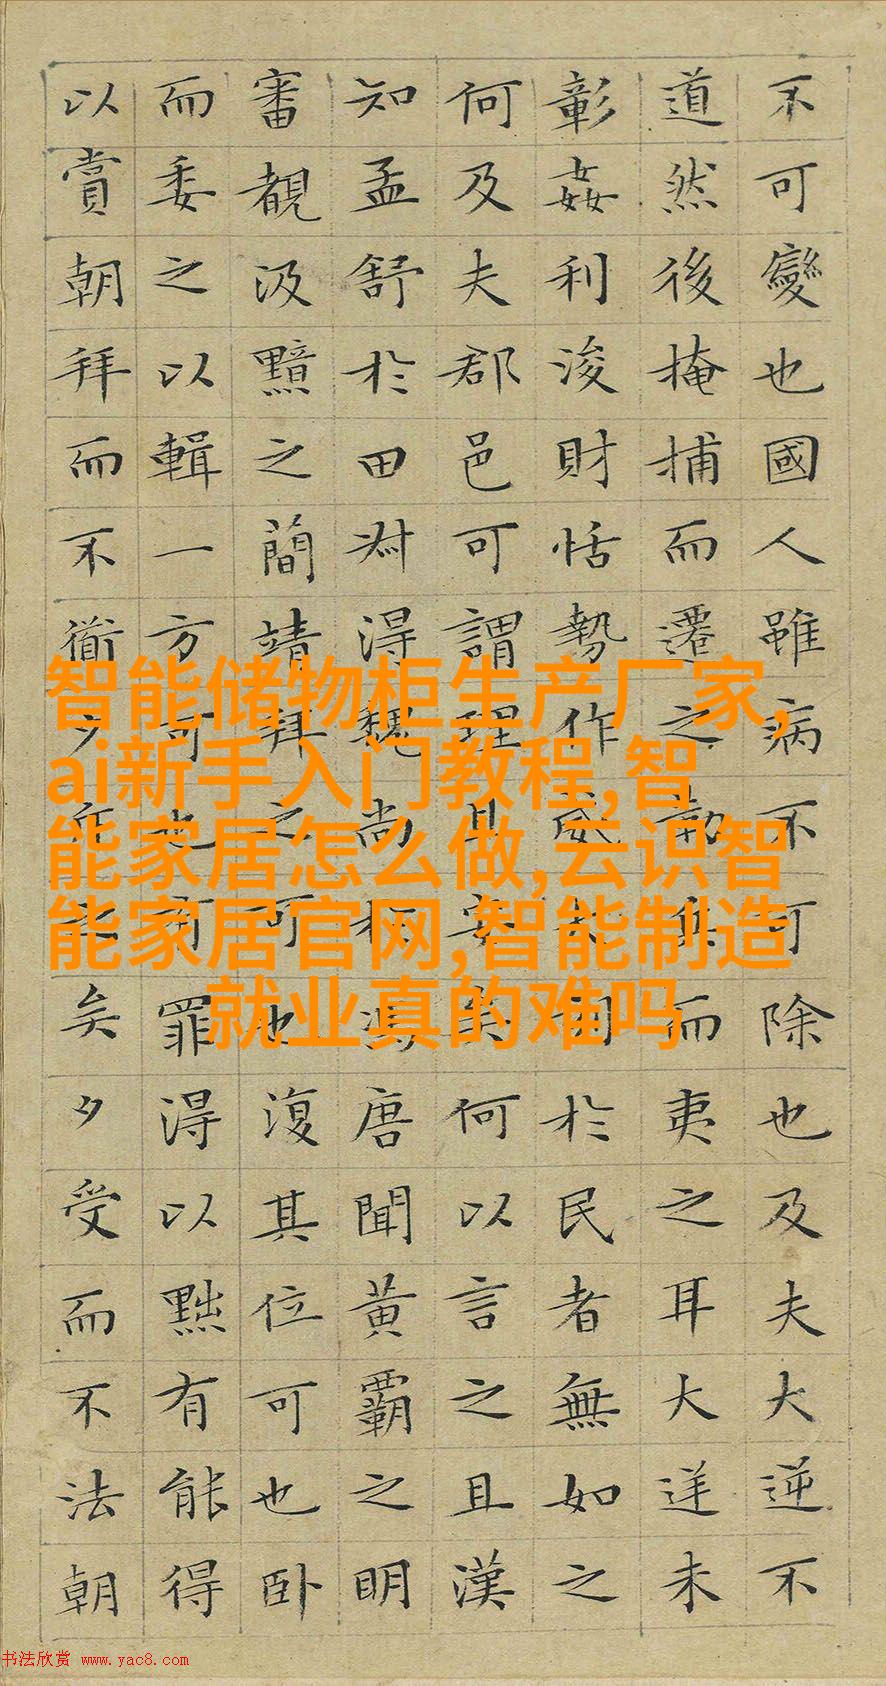 不可變也國人雖病不可除也及夫大逆不
道然後掩捕而遷之勒兵而夷之耳大逆未
彰姦利浚財恬勢作威大刻於民者無如之
何及夫郡邑可謂理且安矣何以言之且漢
知孟舒於田叔得魏尚於馮唐聞黃霸之明
審覩汲黯之簡靖拜之可也復其位可也卧
而委之以輯一方可也有罪得以黜有能得
以賞朝拜而不衟夕斥之矣夕受而不法朝
智能储物柜生产厂家,
ai新手入门教程,智
能家居怎么做,云识智
能家居官网,智能制造
就业真的难吗
书法欣赏 www.yac8.com